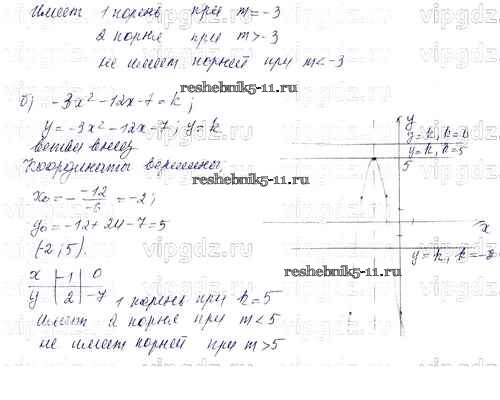 имеет 1 корень при m=-3
2 корня при m>-3
не имеет корней при m<-3
reshebnik5-11.ru
б) -3x²-12x-7=k;
y=-3x²-12x-7; y=k
ветви вниз
Координаты вершины
reshebnik5-11.ru
x₀=-\frac{-12}{-6}=-2;
y₀=-12+24-7=5
(-2;5).
x | -1 | 0
y | 2 | -7
1 корень при k=5
имеет 2 корня при m<5
не имеет корней при m>5
y
y=k, k=6
y=k, k=5
5
x
reshebnik5-11.ru
vipgdz.ru